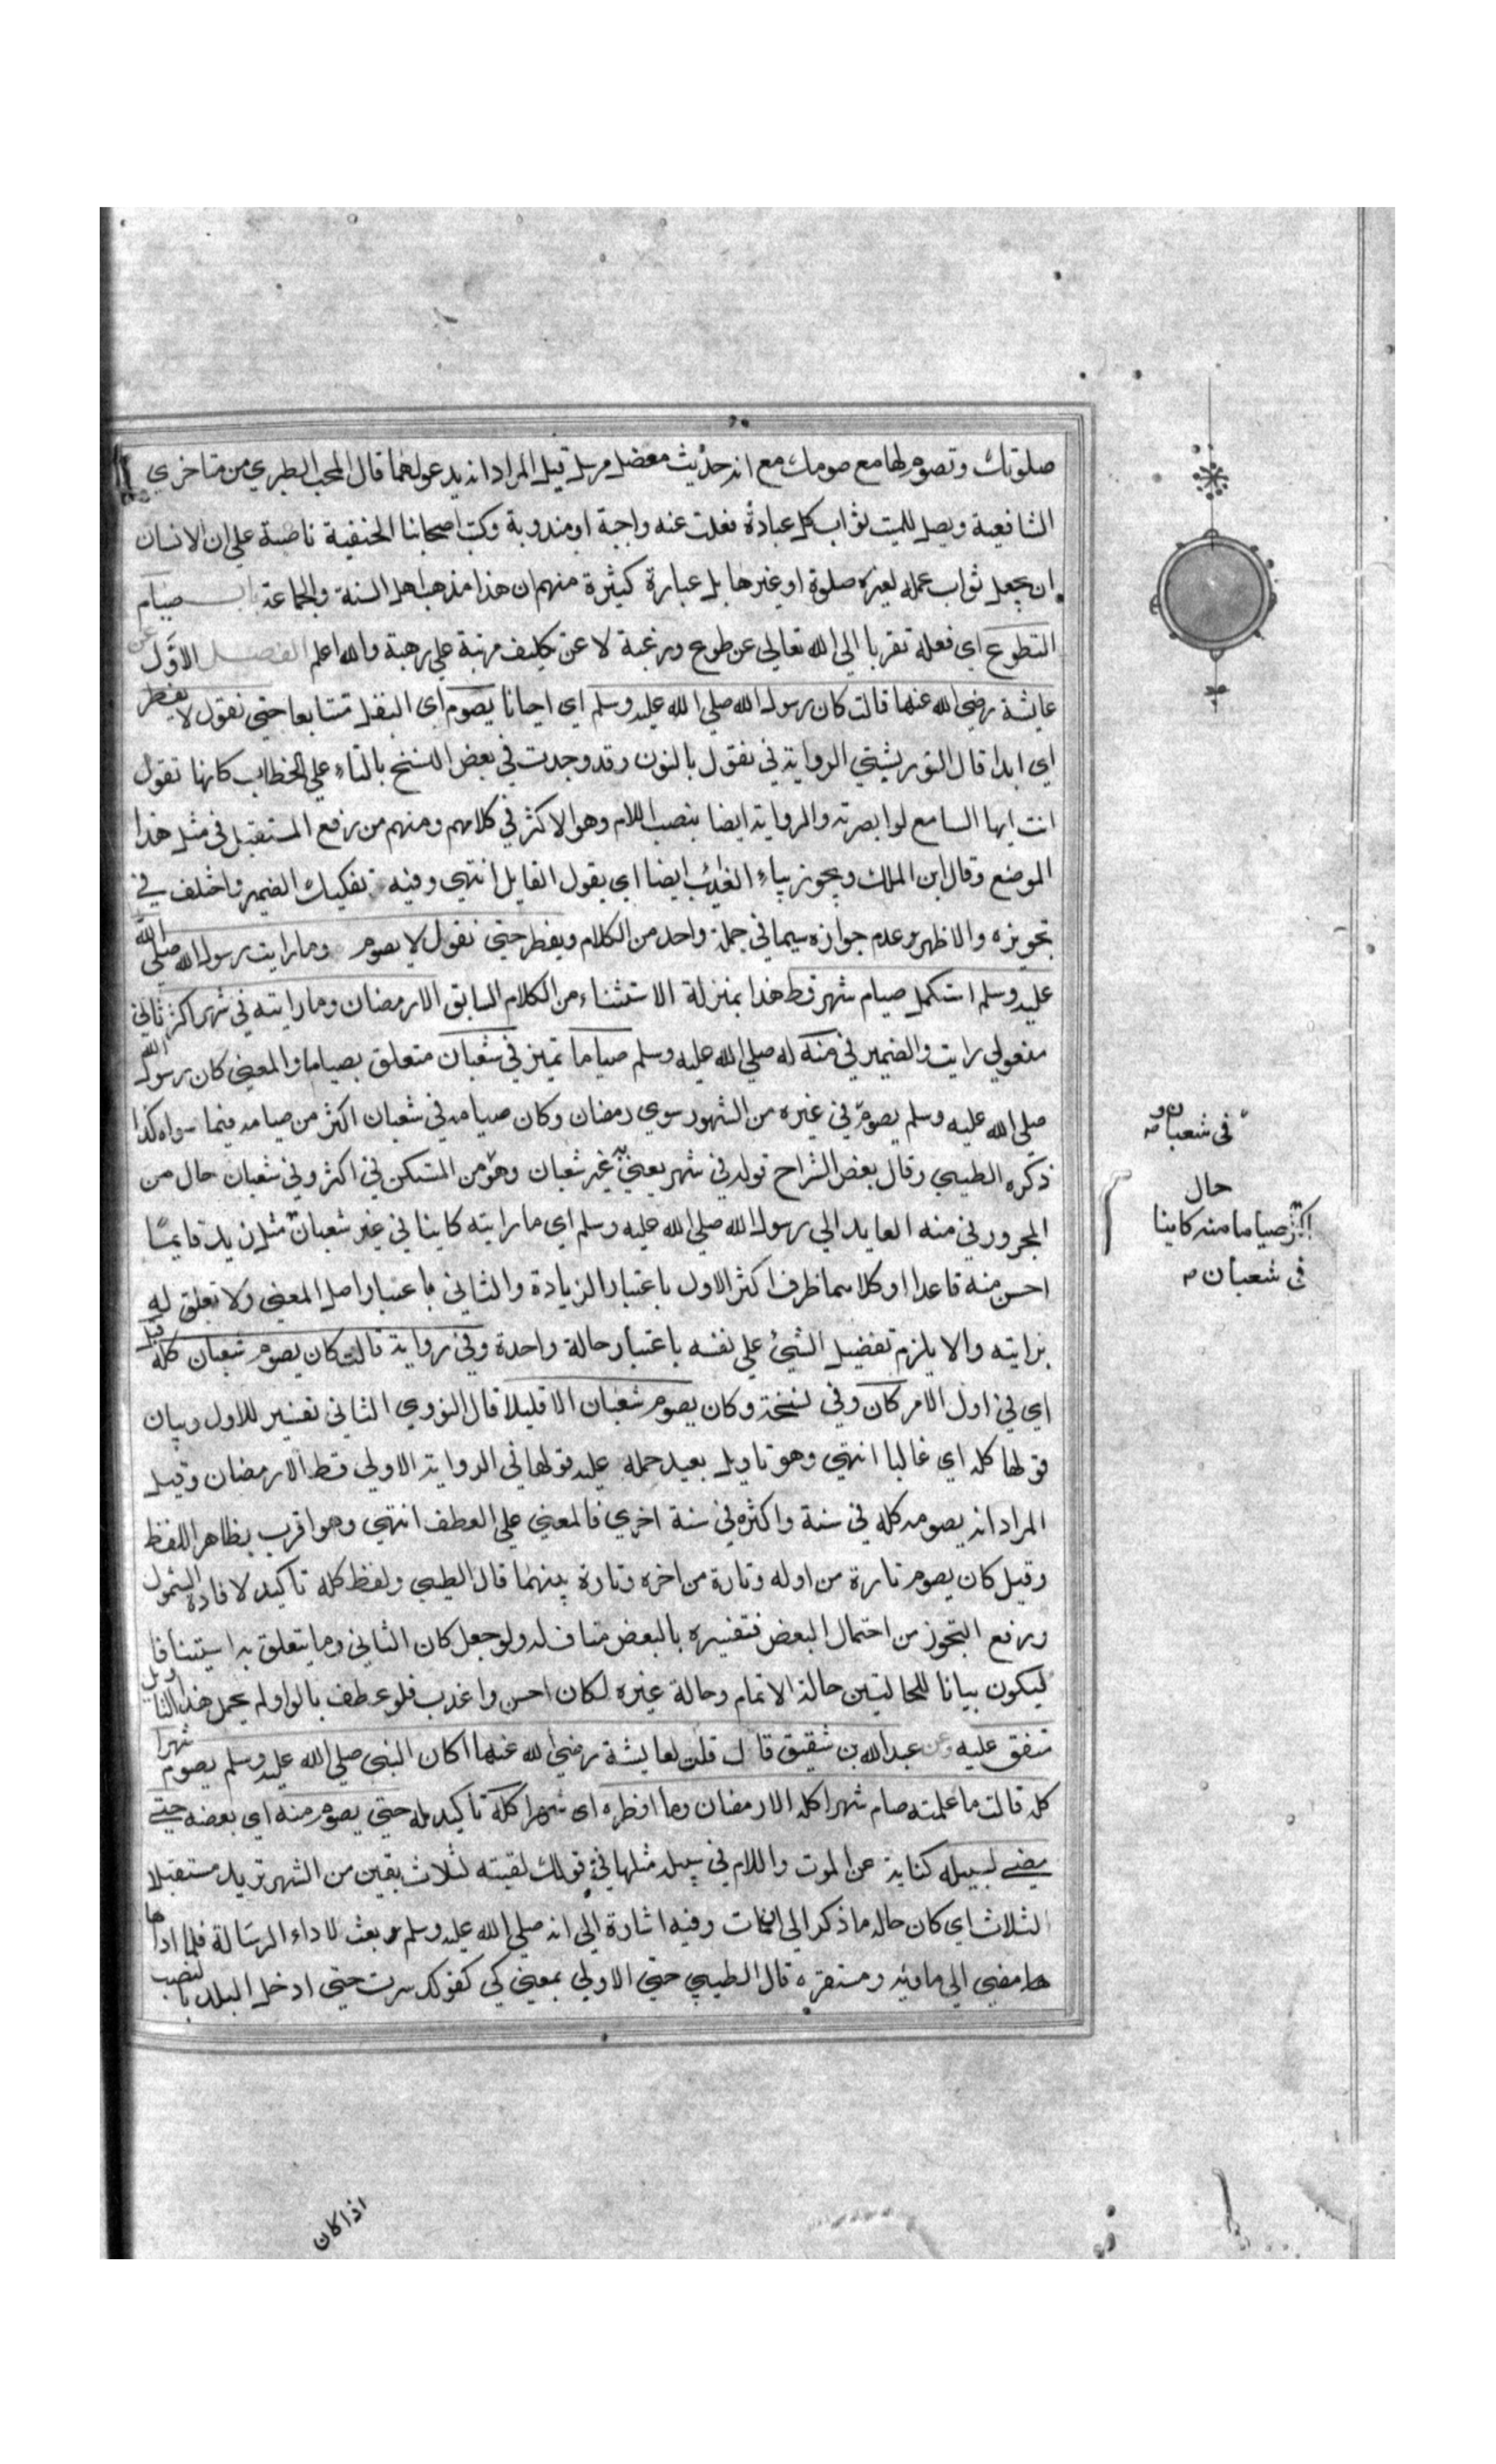 صلوتك وتصوم لها مع صومك مع انه حديث معضل مرسل قيل المراد انه يدعو لهما قال المحب الطبري من متاخري
الشافعية ويصل للميت ثواب كل عبادة فعلت عنه واجبة او مندوبة وكتب اصحابنا الحنفية ناصة علي ان الانسان
ان يجعل ثواب عمله لغيره صلوة او غيرها بل عبارة كثيرة منهم ان هذا مذهب اهل السنة والجماعة باب صيام
التطوع اي فعله تقربا الي الله تعالي عن طوع ورغبة لا عن تكليف مرتبة علي رهبة والله اعلم الفصل الاول عن
عايشة رضي الله عنها قالت كان رسول الله صلي الله عليه وسلم اي احيانا يصوم اي النفل متتابعا حتي نقول لا يفطر
اي ابدا قال التوربشتي الرواية في نقول بالنون وقد وجدت في بعض النسخ بالتاء علي الخطاب كانها تقول
انت ايها السامع لو ابصرته والرواية ايضا بنصب اللام وهو الاكثر في كلامهم ومنهم من رفع المستقبل في مثل هذا
الموضع وقال ابن الملك ويجوز بياء الغائب ايضا اي يقول القايل انتهي وفيه تفكيك الضمير واختلف في
تجويزه والاظهر عدم جوازه سيما في جملة واحد من الكلام ويفطر حتي نقول لا يصوم وما رايت رسول الله صلي الله
عليه وسلم استكمل صيام شهر قط هذا بمنزلة الاستثناء من الكلام السابق الا رمضان وما رايته في شهر اكثر ثاني
مفعولي رايت والضمير في منه له صلي الله عليه وسلم صياما تميز في شعبان متعلق بصياما والمعني كان رسول الله
صلي الله عليه وسلم يصوم في غيره من الشهور سوي رمضان وكان صيامه في شعبان اكثر من صيامه فيما سواه كذا
ذكره الطيبي وقال بعض الشراح قوله في شهر يعني به غير شعبان وهو من المستكن في اكثر وفي شعبان حال من
المجرور في منه العايد الي رسول الله صلي الله عليه وسلم اي ما رايته كاينا في غير شعبان مثل زيد قايما
احسن منه قاعدا او كلاهما ظرف اكثر الاول باعتبار الزيادة والثاني باعتبار اصل المعني ولا تعلق له
برايته والا يلزم تفضيل الشيئ علي نفسه باعتبار حالة واحدة وفي رواية قالت كان يصوم شعبان كله قيل
اي في اول الامر كان وفي نسخة وكان يصوم شعبان الا قليلا قال النووي الثاني تفسير للاول وبيان
قولها كله اي غالبا انتهي وهو تاويل بعيد حمله عليه قولها في الرواية الاولي قط الا رمضان وقيل
المراد انه يصومه كله في سنة واكثره في سنة اخري فالمعني علي العطف انتهي وهو اقرب بظاهر اللفظ
وقيل كان يصوم تارة من اوله وتارة من اخره وتارة بينهما قال الطيبي ولفظ كله تاكيد لافادة الشمول
ورفع التجوز من احتمال البعض فتفسيره بالبعض مناف له ولو جعل كان الثاني وما يتعلق به استينافا
ليكون بيانا للحالتين حالة الاتمام وحالة غيره لكان احسن واغرب فلو عطف بالواو لم يحمل هذا التاويل
متفق عليه وعن عبد الله بن شقيق قال قلت لعايشة رضي الله عنها اكان النبي صلي الله عليه وسلم يصوم شهرا
كله قالت ما علمته صام شهرا كله الا رمضان وما افطره اي شهرا كله تاكيد له حتي يصوم منه اي بعضه حتي
مضي لسبيله كناية عن الموت واللام في سبيله مثلها في قولك لقيته لثلاث بقين من الشهر تريد مستقبلا
الثلاث اي كان حاله ما ذكر الي الممات وفيه اشارة الي انه صلي الله عليه وسلم بعث لاداء الرسالة فلما اداها
مضي الي ماويه ومستقره قال الطيبي حتي الاولي بمعني كي كقولك سرت حتي ادخل البلد بالنصب
في شعبان
حال
اكثر صياما منه كاينا
في شعبان
اذا كان